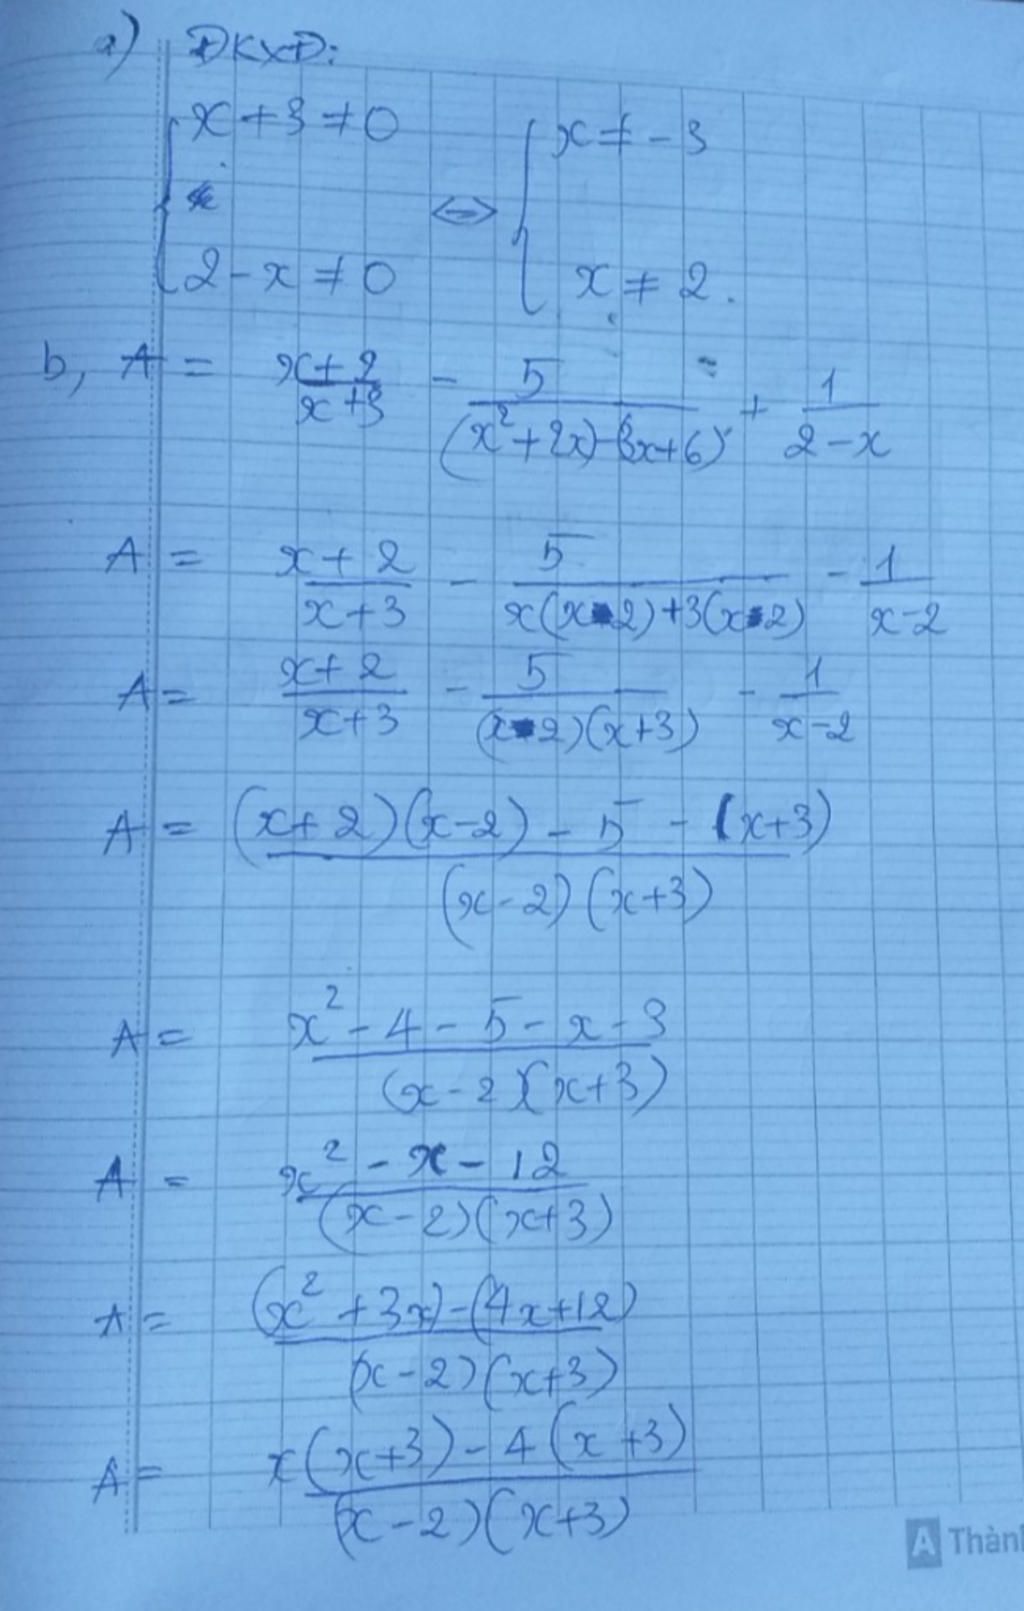 a) ĐKXĐ:
{ x + 3 ≠ 0
2 - x ≠ 0 <=> { x ≠ - 3
x ≠ 2.
b, A = (x+2)/(x+3) - 5/((x²+2x)-(3x+6)) + 1/(2-x)
A = (x+2)/(x+3) - 5/(x(x-2)+3(x-2)) - 1/(x-2)
A = (x+2)/(x+3) - 5/((x-2)(x+3)) - 1/(x-2)
A = ((x+2)(x-2) - 5 - (x+3))/((x-2)(x+3))
A = (x² - 4 - 5 - x - 3)/((x-2)(x+3))
A = (x² - x - 12)/((x-2)(x+3))
A = ((x² + 3x) - (4x+12))/((x-2)(x+3))
A = (x(x+3) - 4(x+3))/((x-2)(x+3))